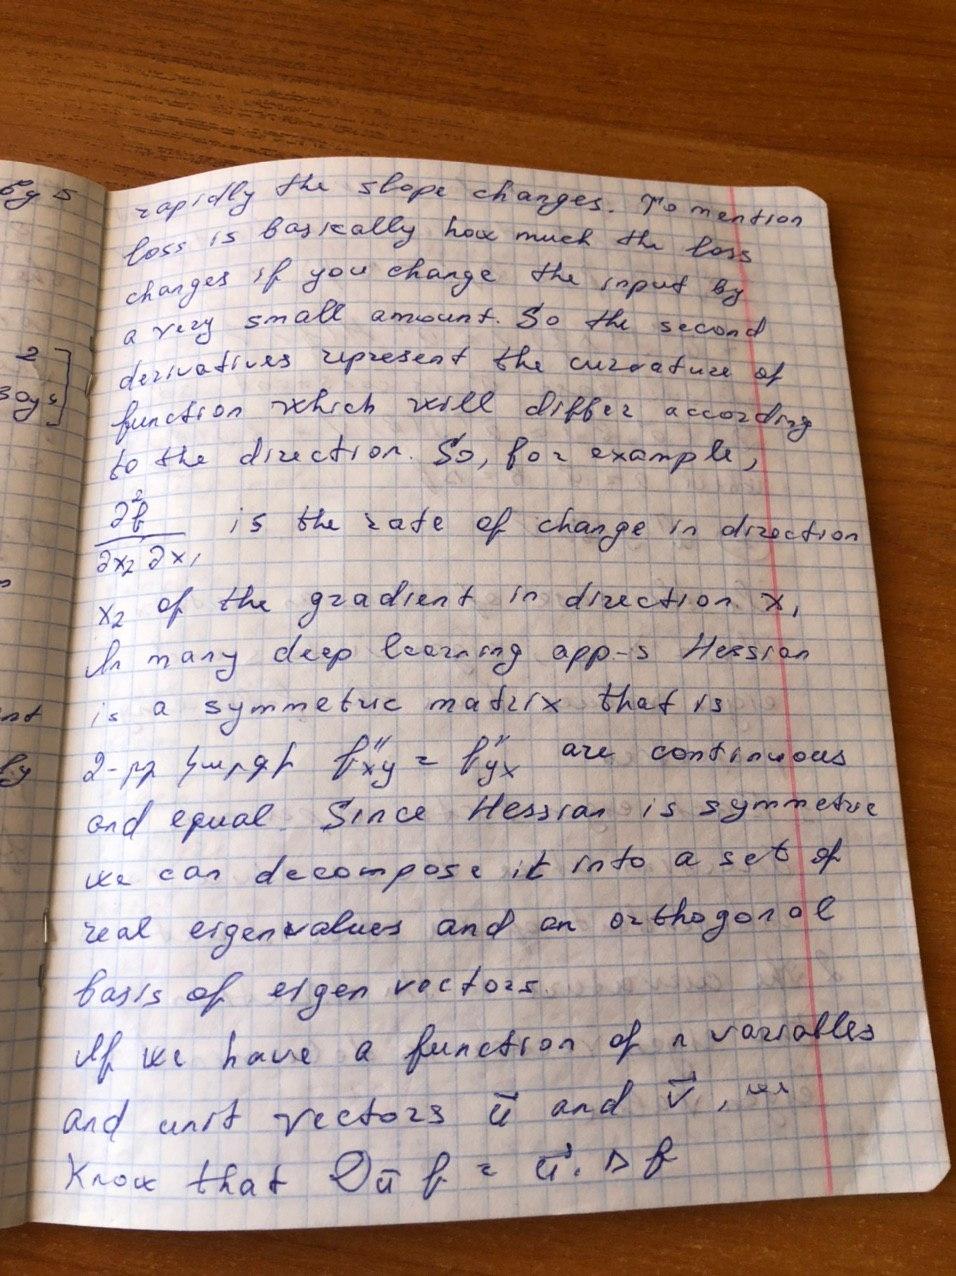 by 5
2
30y⁴
nt
by
rapidly the slope changes. To mention
loss is basically how much the loss
changes if you change the input by
a very small amount. So the second
derivatives represent the curvature of
function which will differ according
to the direction. So, for example,
∂²f / ∂x₂ ∂x₁ is the rate of change in direction
x₂ of the gradient in direction x₁
In many deep learning app-s Hessian
is a symmetric matrix that is
2-րդ կարգի f''xy = f''yx are continuous
and equal. Since Hessian is symmetric
we can decompose it into a set of
real eigenvalues and an orthogonal
basis of eigen vectors.
If we have a function of n variables
and unit vectors u⃗ and v⃗, we
know that D_u⃗ f = u⃗ · ∇f